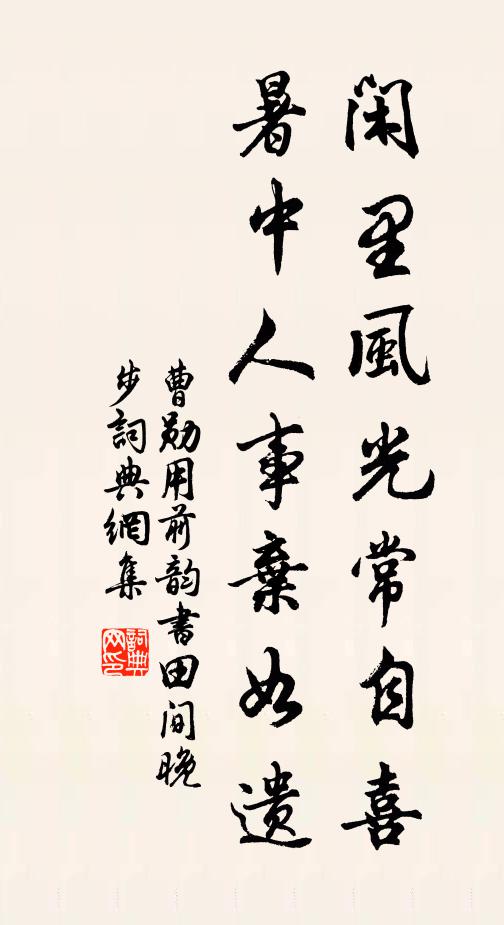 閑里風光常自喜
暑中人事棄如遺
曹勛用前韵書田間晚
步詞典網集
詞典网印